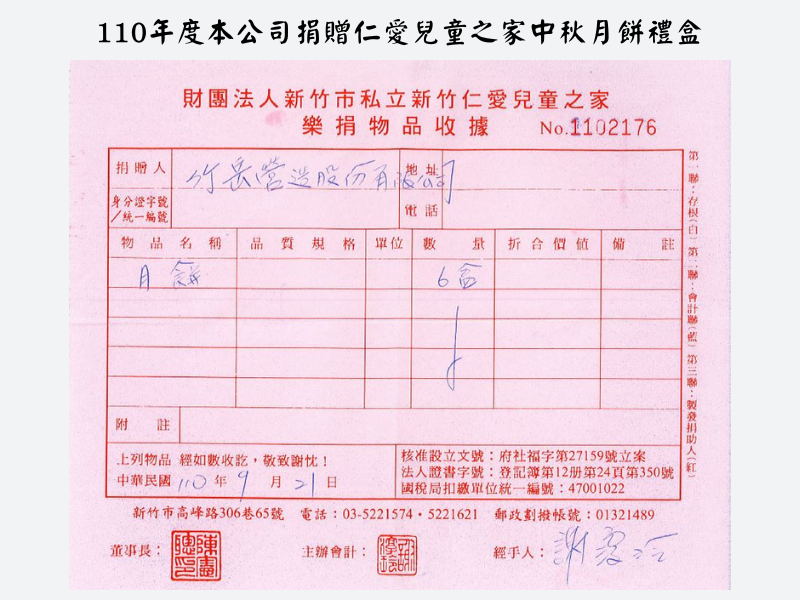 110年度本公司捐贈仁愛兒童之家中秋月餅禮盒
財團法人新竹市私立新竹仁愛兒童之家
樂捐物品收據 No.1102176
捐贈人 竹岳營造股份有限公司 地址
身分證字號/統一編號 電話
物品名稱 品質規格 單位 數量 折合價值 備註
月餅 6盒
附註
上列物品 經如數收訖，敬致謝忱！
中華民國 110 年 9 月 21 日
核准設立文號：府社福字第27159號立案
法人證書字號：登記簿第12册第24頁第350號
國稅局扣繳單位統一編號：47001022
新竹市高峰路306巷65號 電話：03-5221574・5221621 郵政劃撥帳號：01321489
董事長： 主辦會計： 經手人：
第一聯：存根(白) 第二聯：會計聯(藍) 第三聯：製發捐助人(紅)